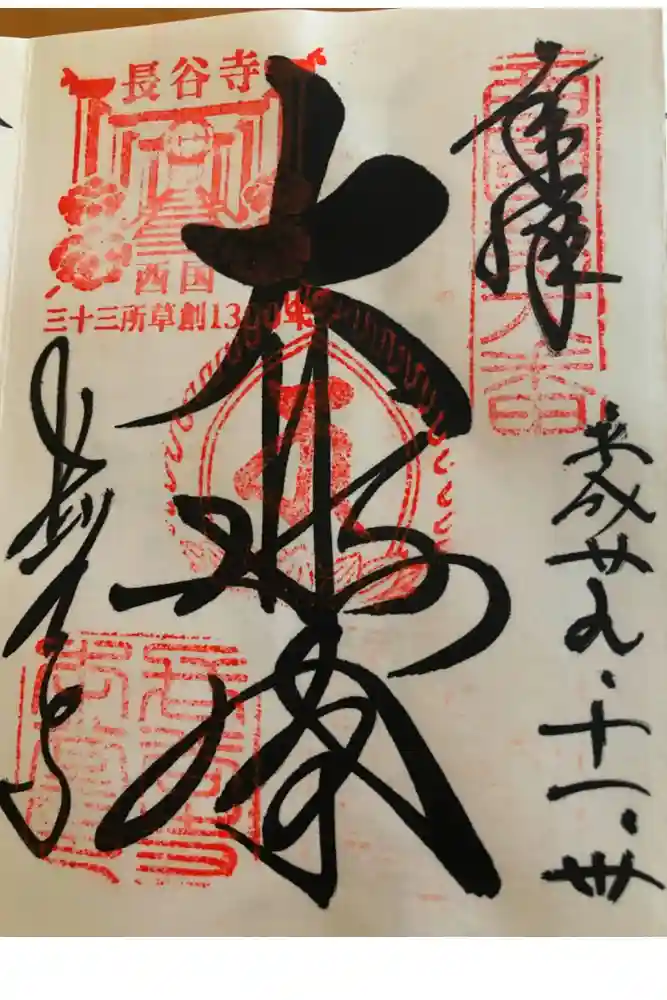 奉拝
平成廿九・十一・卅
大悲閣
長谷寺
長谷寺
西国
三十三所草創1300年